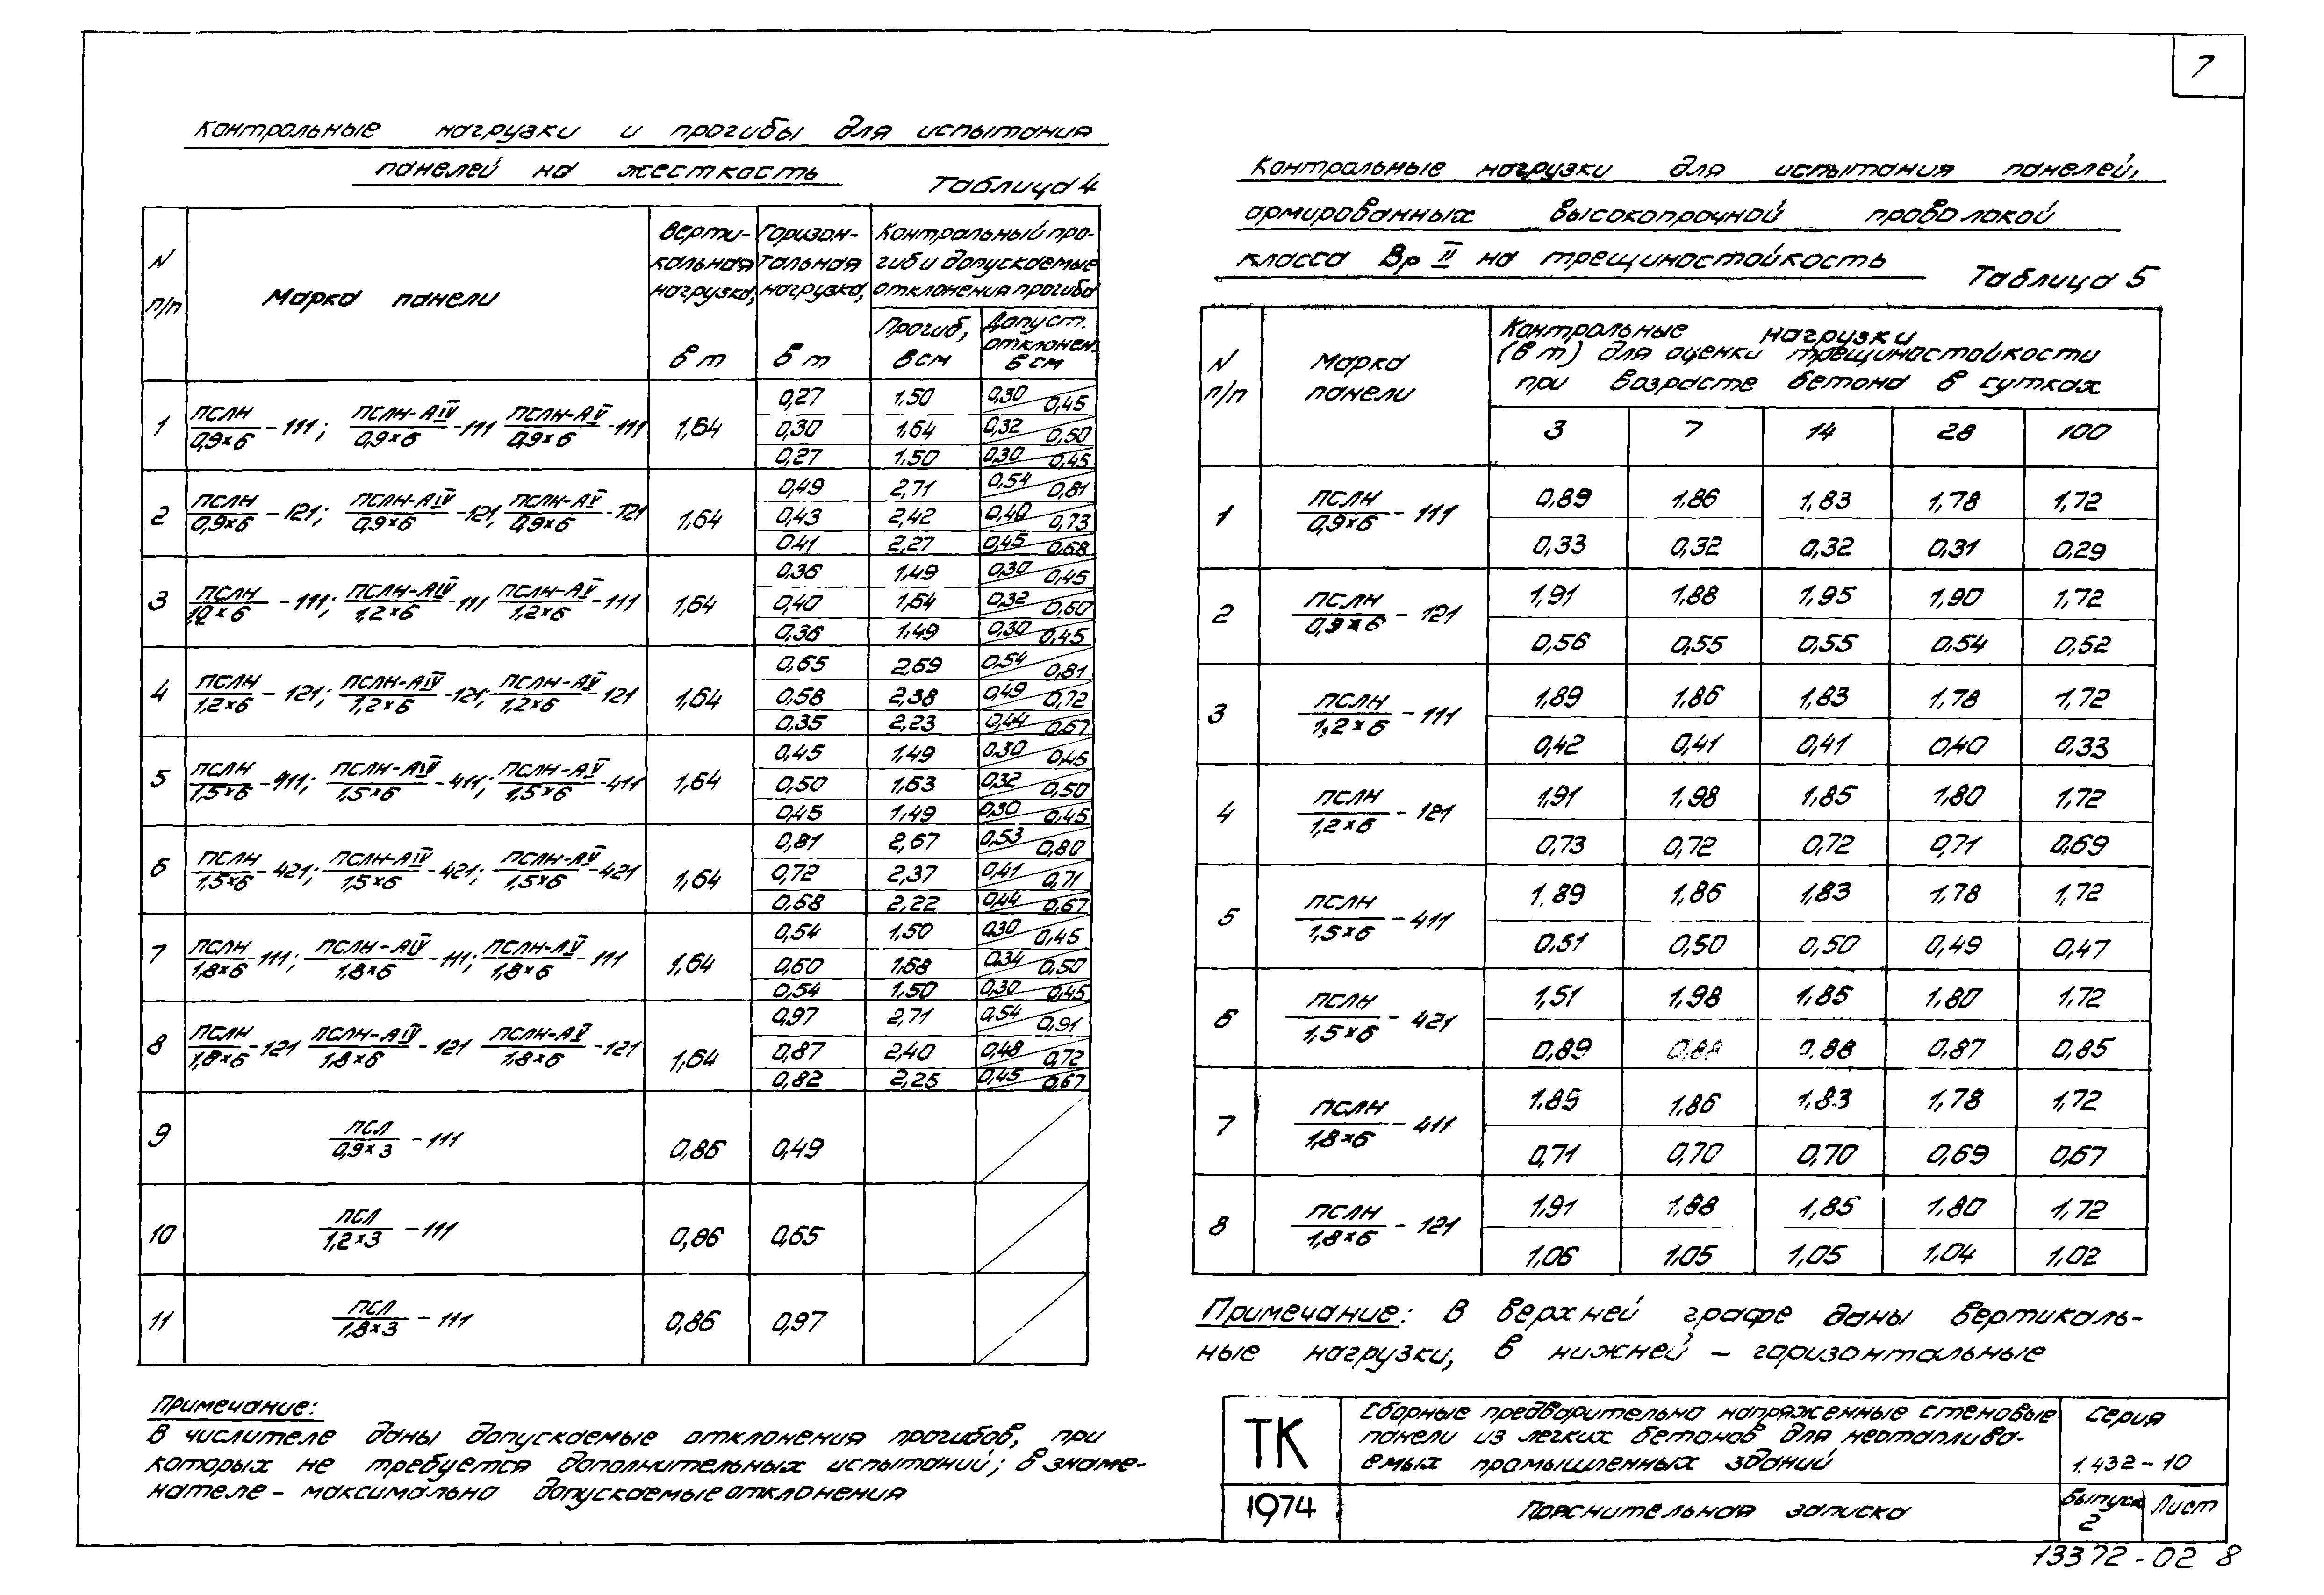 7
Контрольные нагрузки и прогибы для испытания
панелей на жесткость
Таблица 4
N п/п | Марка панели | Верти-кальная нагрузка, в т | Горизон-тальная нагрузка, в т | Контрольный про-гиб и допускаемые отклонения прогиба
Прогиб, в см | Допуст. отклонен. в см
1 | ПСЛН/0,9×6 - 111; ПСЛН-АIV/0,9×6 - 111 ПСЛН-АV/0,9×6 - 111 | 1,64 | 0,27 | 1,50 | 0,30/0,45
0,30 | 1,64 | 0,32/0,50
0,27 | 1,50 | 0,30/0,45
2 | ПСЛН/0,9×6 - 121; ПСЛН-АIV/0,9×6 - 121, ПСЛН-АV/0,9×6 - 121 | 1,64 | 0,49 | 2,71 | 0,54/0,81
0,43 | 2,42 | 0,40/0,73
0,41 | 2,27 | 0,45/0,68
3 | ПСЛН/1,2×6 - 111; ПСЛН-АIV/1,2×6 - 111 ПСЛН-АV/1,2×6 - 111 | 1,64 | 0,36 | 1,49 | 0,30/0,45
0,40 | 1,64 | 0,32/0,60
0,36 | 1,49 | 0,30/0,45
4 | ПСЛН/1,2×6 - 121; ПСЛН-АIV/1,2×6 - 121; ПСЛН-АV/1,2×6 - 121 | 1,64 | 0,65 | 2,69 | 0,54/0,81
0,58 | 2,38 | 0,49/0,72
0,35 | 2,23 | 0,44/0,67
5 | ПСЛН/1,5×6 - 411; ПСЛН-АIV/1,5×6 - 411; ПСЛН-АV/1,5×6 - 411 | 1,64 | 0,45 | 1,49 | 0,30/0,45
0,50 | 1,63 | 0,32/0,50
0,45 | 1,49 | 0,30/0,45
6 | ПСЛН/1,5×6 - 421; ПСЛН-АIV/1,5×6 - 421; ПСЛН-АV/1,5×6 - 421 | 1,64 | 0,81 | 2,67 | 0,53/0,80
0,72 | 2,37 | 0,41/0,71
0,68 | 2,22 | 0,44/0,67
7 | ПСЛН/1,8×6 - 111; ПСЛН-АIV/1,8×6 - 111; ПСЛН-АV/1,8×6 - 111 | 1,64 | 0,54 | 1,50 | 0,30/0,45
0,60 | 1,68 | 0,34/0,50
0,54 | 1,50 | 0,30/0,45
8 | ПСЛН/1,8×6 - 121 ПСЛН-АIV/1,8×6 - 121 ПСЛН-АV/1,8×6 - 121 | 1,64 | 0,97 | 2,71 | 0,54/0,91
0,87 | 2,40 | 0,48/0,72
0,82 | 2,25 | 0,45/0,67
9 | ПСЛ/0,9×3 - 111 | 0,86 | 0,49
10 | ПСЛ/1,2×3 - 111 | 0,86 | 0,65
11 | ПСЛ/1,8×3 - 111 | 0,86 | 0,97
Примечание:
В числителе даны допускаемые отклонения прогибов, при
которых не требуется дополнительных испытаний; в знаме-
нателе - максимально допускаемые отклонения
Контрольные нагрузки для испытания панелей,
армированных высокопрочной проволокой
класса Вр II на трещиностойкость
Таблица 5
N п/п | Марка панели | Контрольные нагрузки (в т) для оценки трещиностойкости при возрасте бетона в сутках
3 | 7 | 14 | 28 | 100
1 | ПСЛН/0,9×6 - 111 | 0,89 | 1,86 | 1,83 | 1,78 | 1,72
0,33 | 0,32 | 0,32 | 0,31 | 0,29
2 | ПСЛН/0,9×6 - 121 | 1,91 | 1,88 | 1,95 | 1,90 | 1,72
0,56 | 0,55 | 0,55 | 0,54 | 0,52
3 | ПСЛН/1,2×6 - 111 | 1,89 | 1,86 | 1,83 | 1,78 | 1,72
0,42 | 0,41 | 0,41 | 0,40 | 0,33
4 | ПСЛН/1,2×6 - 121 | 1,91 | 1,98 | 1,85 | 1,80 | 1,72
0,73 | 0,72 | 0,72 | 0,71 | 0,69
5 | ПСЛН/1,5×6 - 411 | 1.89 | 1,86 | 1,83 | 1,78 | 1,72
0,51 | 0,50 | 0,50 | 0,49 | 0,47
6 | ПСЛН/1,5×6 - 421 | 1,51 | 1,98 | 1,85 | 1,80 | 1,72
0,89 | 0,88 | 0,88 | 0,87 | 0,85
7 | ПСЛН/1,8×6 - 411 | 1.89 | 1,86 | 1,83 | 1,78 | 1,72
0,71 | 0,70 | 0,70 | 0,69 | 0,67
8 | ПСЛН/1,8×6 - 121 | 1,91 | 1,88 | 1,85 | 1,80 | 1,72
1,06 | 1,05 | 1,05 | 1,04 | 1,02
Примечание: В верхней графе даны вертикаль-
ные нагрузки, в нижней - горизонтальные
ТК
1974
Сборные предварительно напряженные стеновые
панели из легких бетонов для неотаплива-
емых промышленных зданий
Пояснительная записка
Серия
1.432-10
Выпуск
2
Лист
13372-02 8